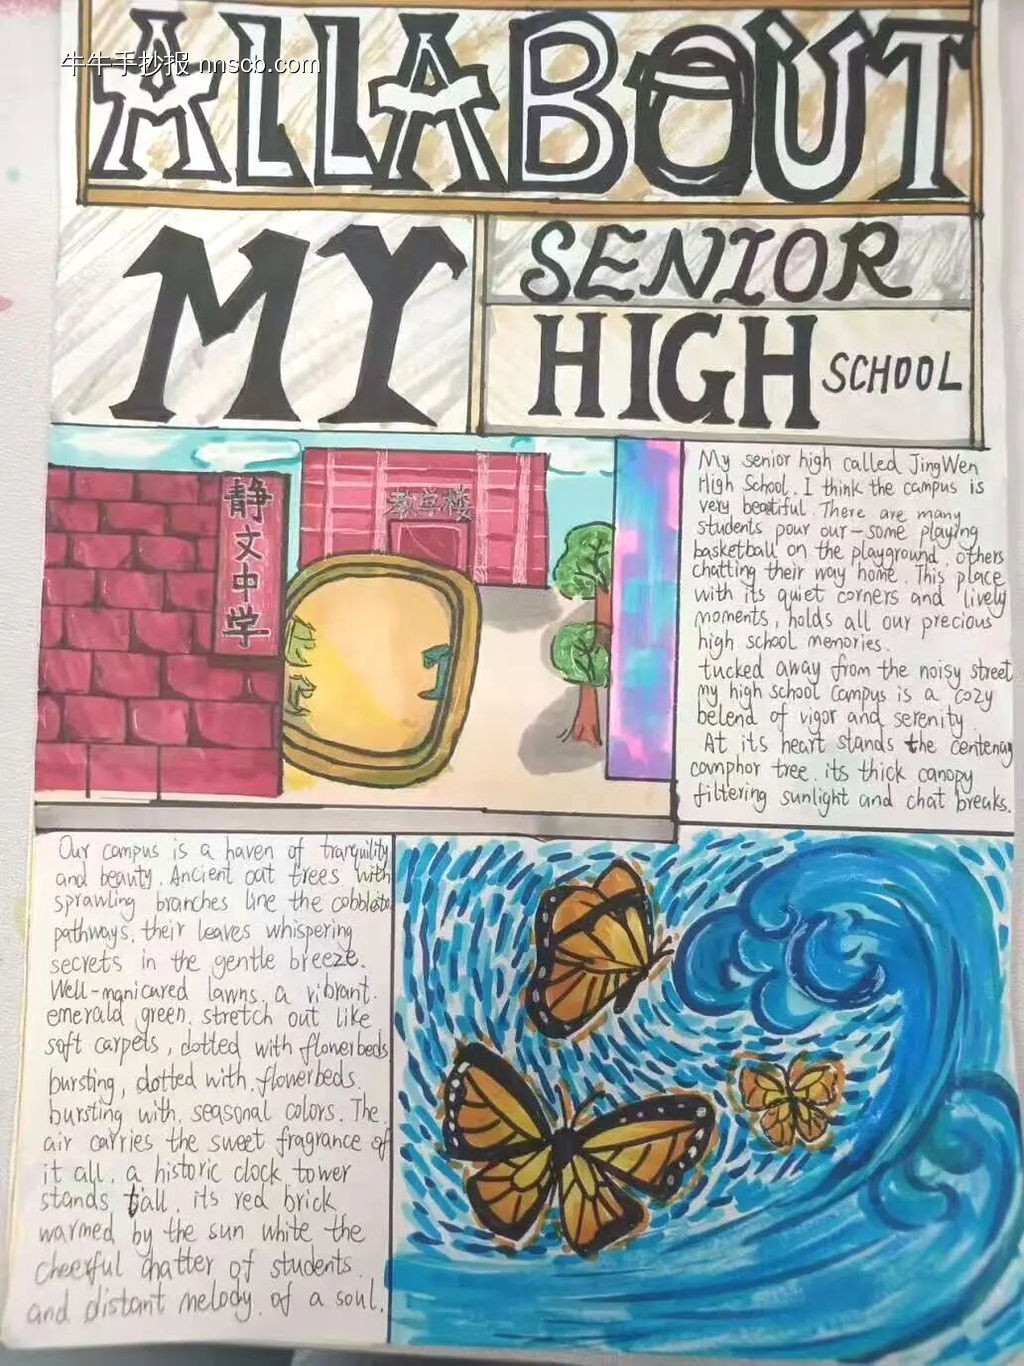 牛牛手抄报 nnscb.com
ALL ABOUT
MY
SENIOR
HIGH SCHOOL
静文中学
教学楼
My senior high called JingWen
High School. I think the campus is
very beatiful. There are many
students pour our-some playing
basketball on the playground, others
chatting their way home. This place
with its quiet corners and lively
moments, holds all our precious
high school memories.
tucked away from the noisy street
my high school campus is a cozy
belend of vigor and serenity.
At its heart stands the centenay
camphor tree. its thick canopy
filtering sunlight and chat breaks.
Our campus is a haven of tranquility
and beauty. Ancient oat trees with
sprawling branches line the cobblesto
pathways, their leaves whispering
secrets in the gentle breeze.
Well-manicured lawns, a vibrant.
emerald green, stretch out like
soft carpets, dotted with flowerbeds
bursting, dotted with, flowerbeds.
bursting with, seasonal colors. The
air carries the sweet fragrance of
it all, a historic clock tower
stands tall, its red brick
warmed by the sun white the
cheerful chatter of students
and distant melody of a soul.